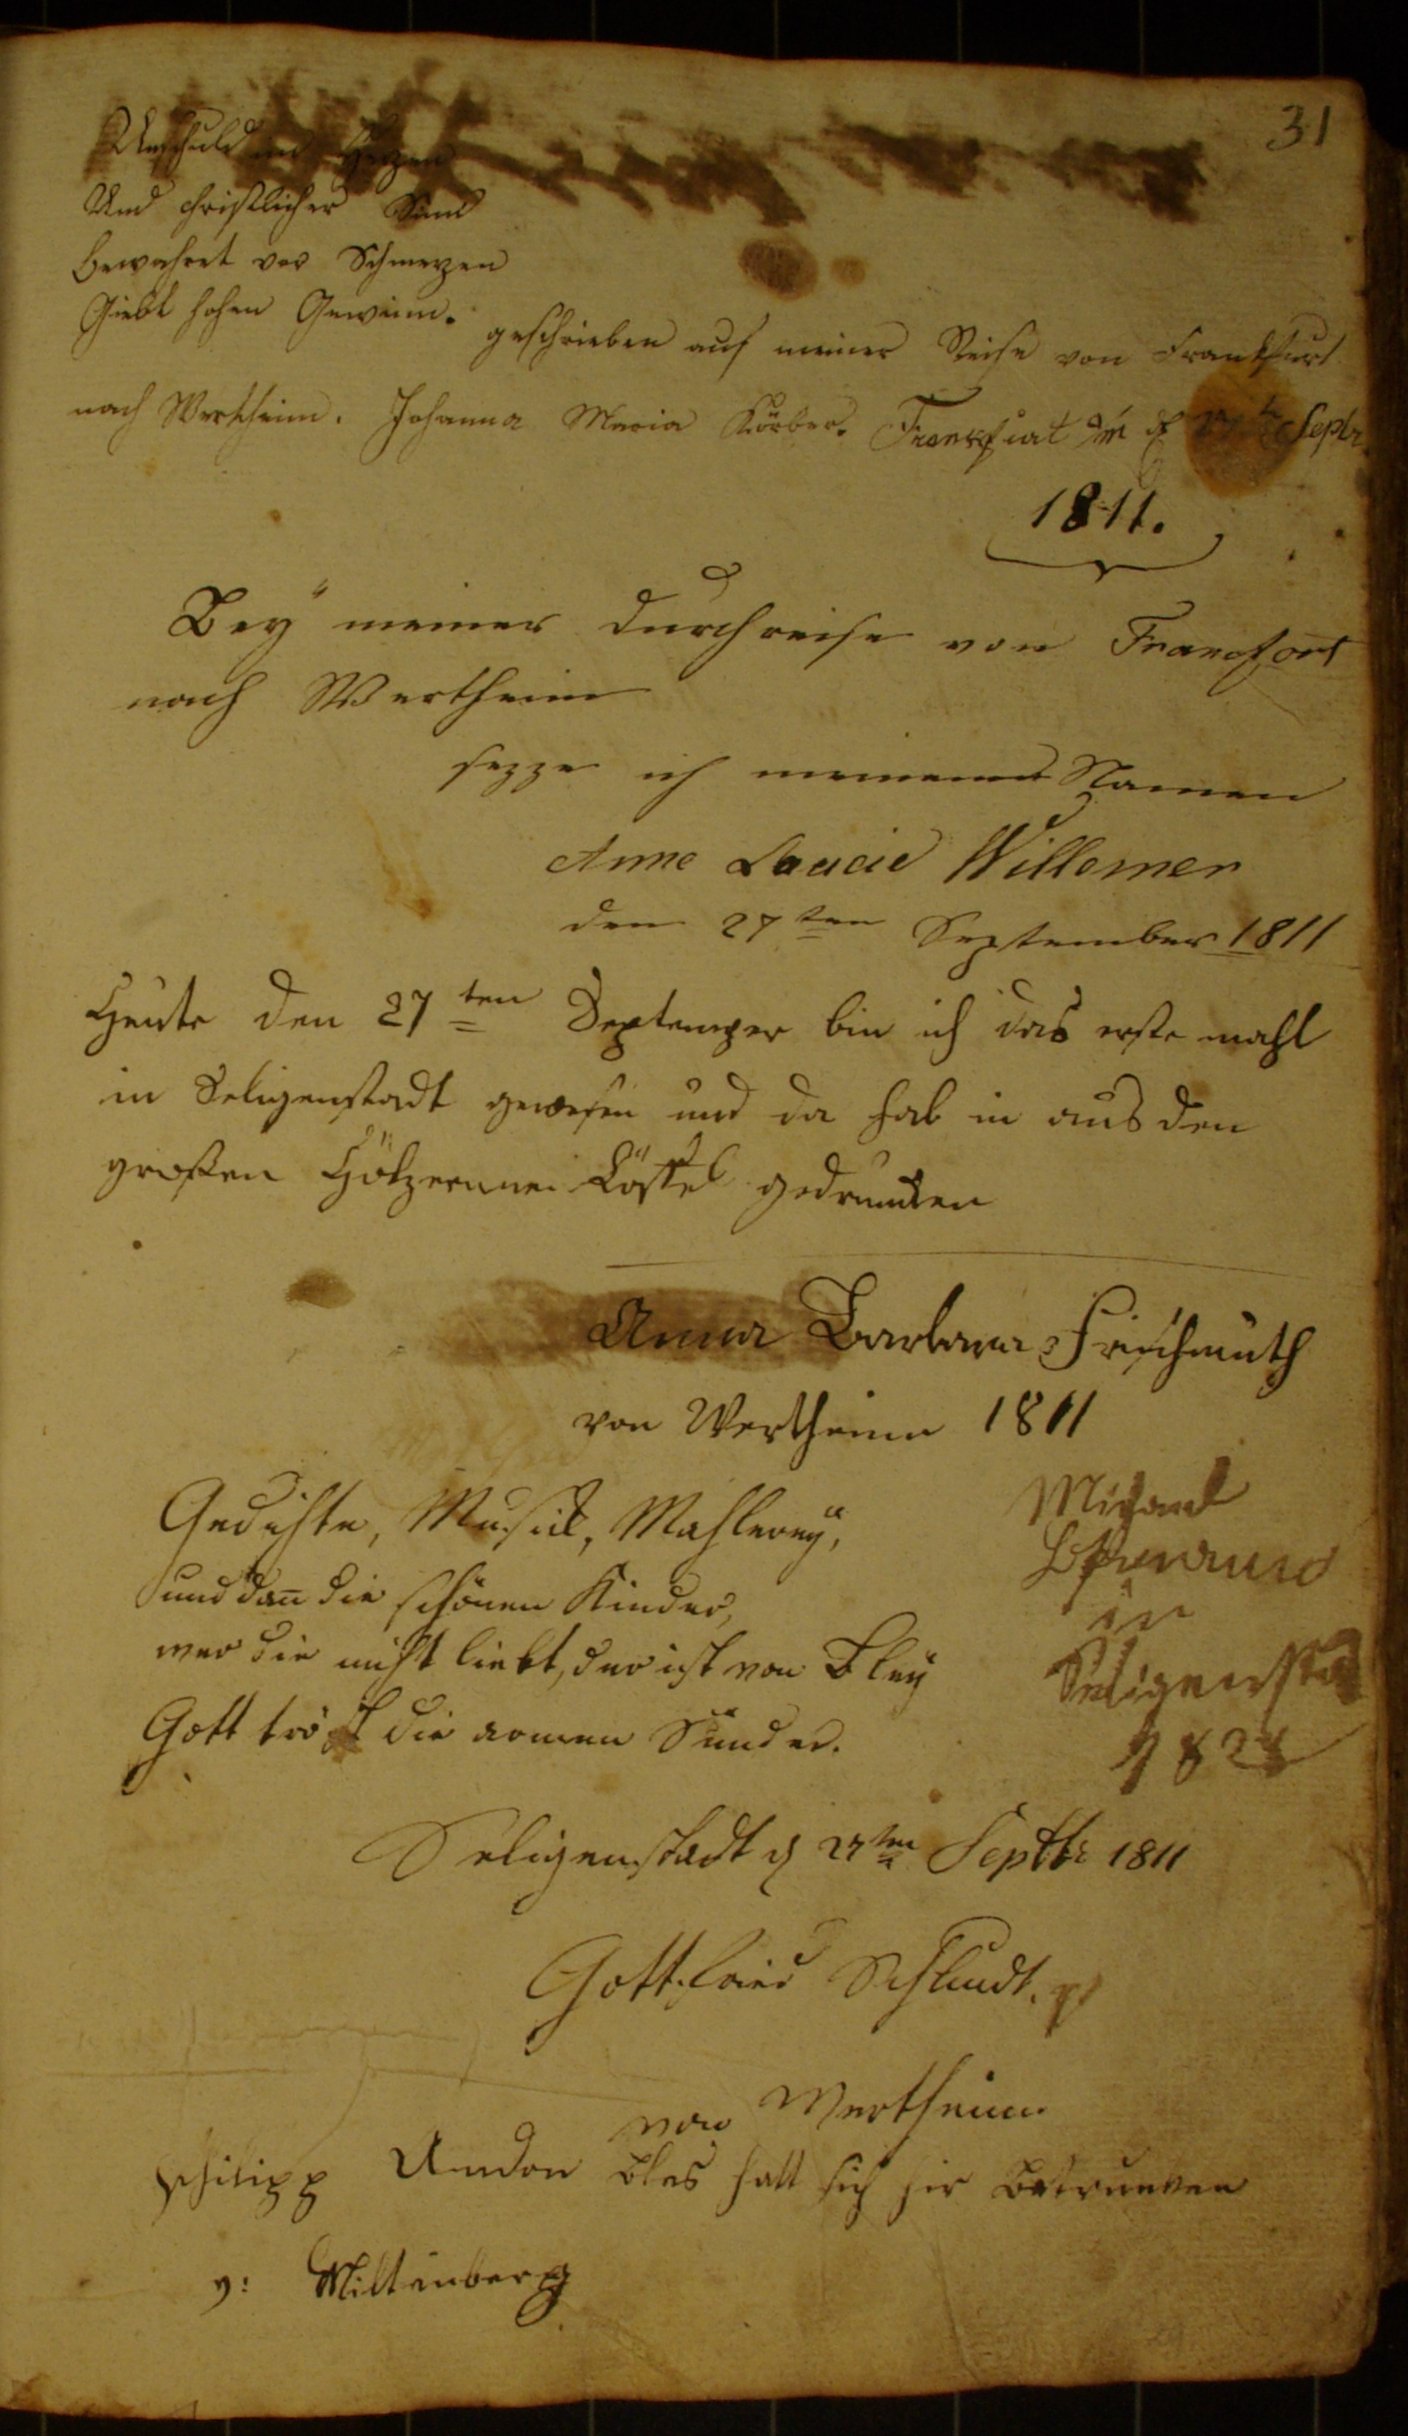 31
Unschuld im Herzen
Und christlicher Sinn
Bewahret vor Schmerzen
Giebt hohen Gewinn. geschrieben auf meiner Reise von Frankfurt
nach Wertheim. Johanna Maria Körber. Frankfurt 27 Septr
1811.
Bey meiner Durchreise von Francfort
nach Wertheim
sezze ich meinen Namen
Anne Willemer
den 27ten September 1811
Heute den 27ten Septemper bin ich das erste mahl
in Seligenstadt gewesen und da hab in aus den
großen Hölzernen Löffel gedruncken
Anna Barbara Frischmuth
von Wertheim 1811
Gedichte, Musick, Mahlerey,
und dan̄ die schönen Kinder,
wer die nicht liebt, der ist von Bley
Gott tröst die armen Sünder.
Michael
in
Seligenstad
182
Seligenstadt d 27ten Septbr 1811
Gottfried Schlundt.
von Wertheim
Philipp Andon hatt sich hir betrunken
v: Miltenberg